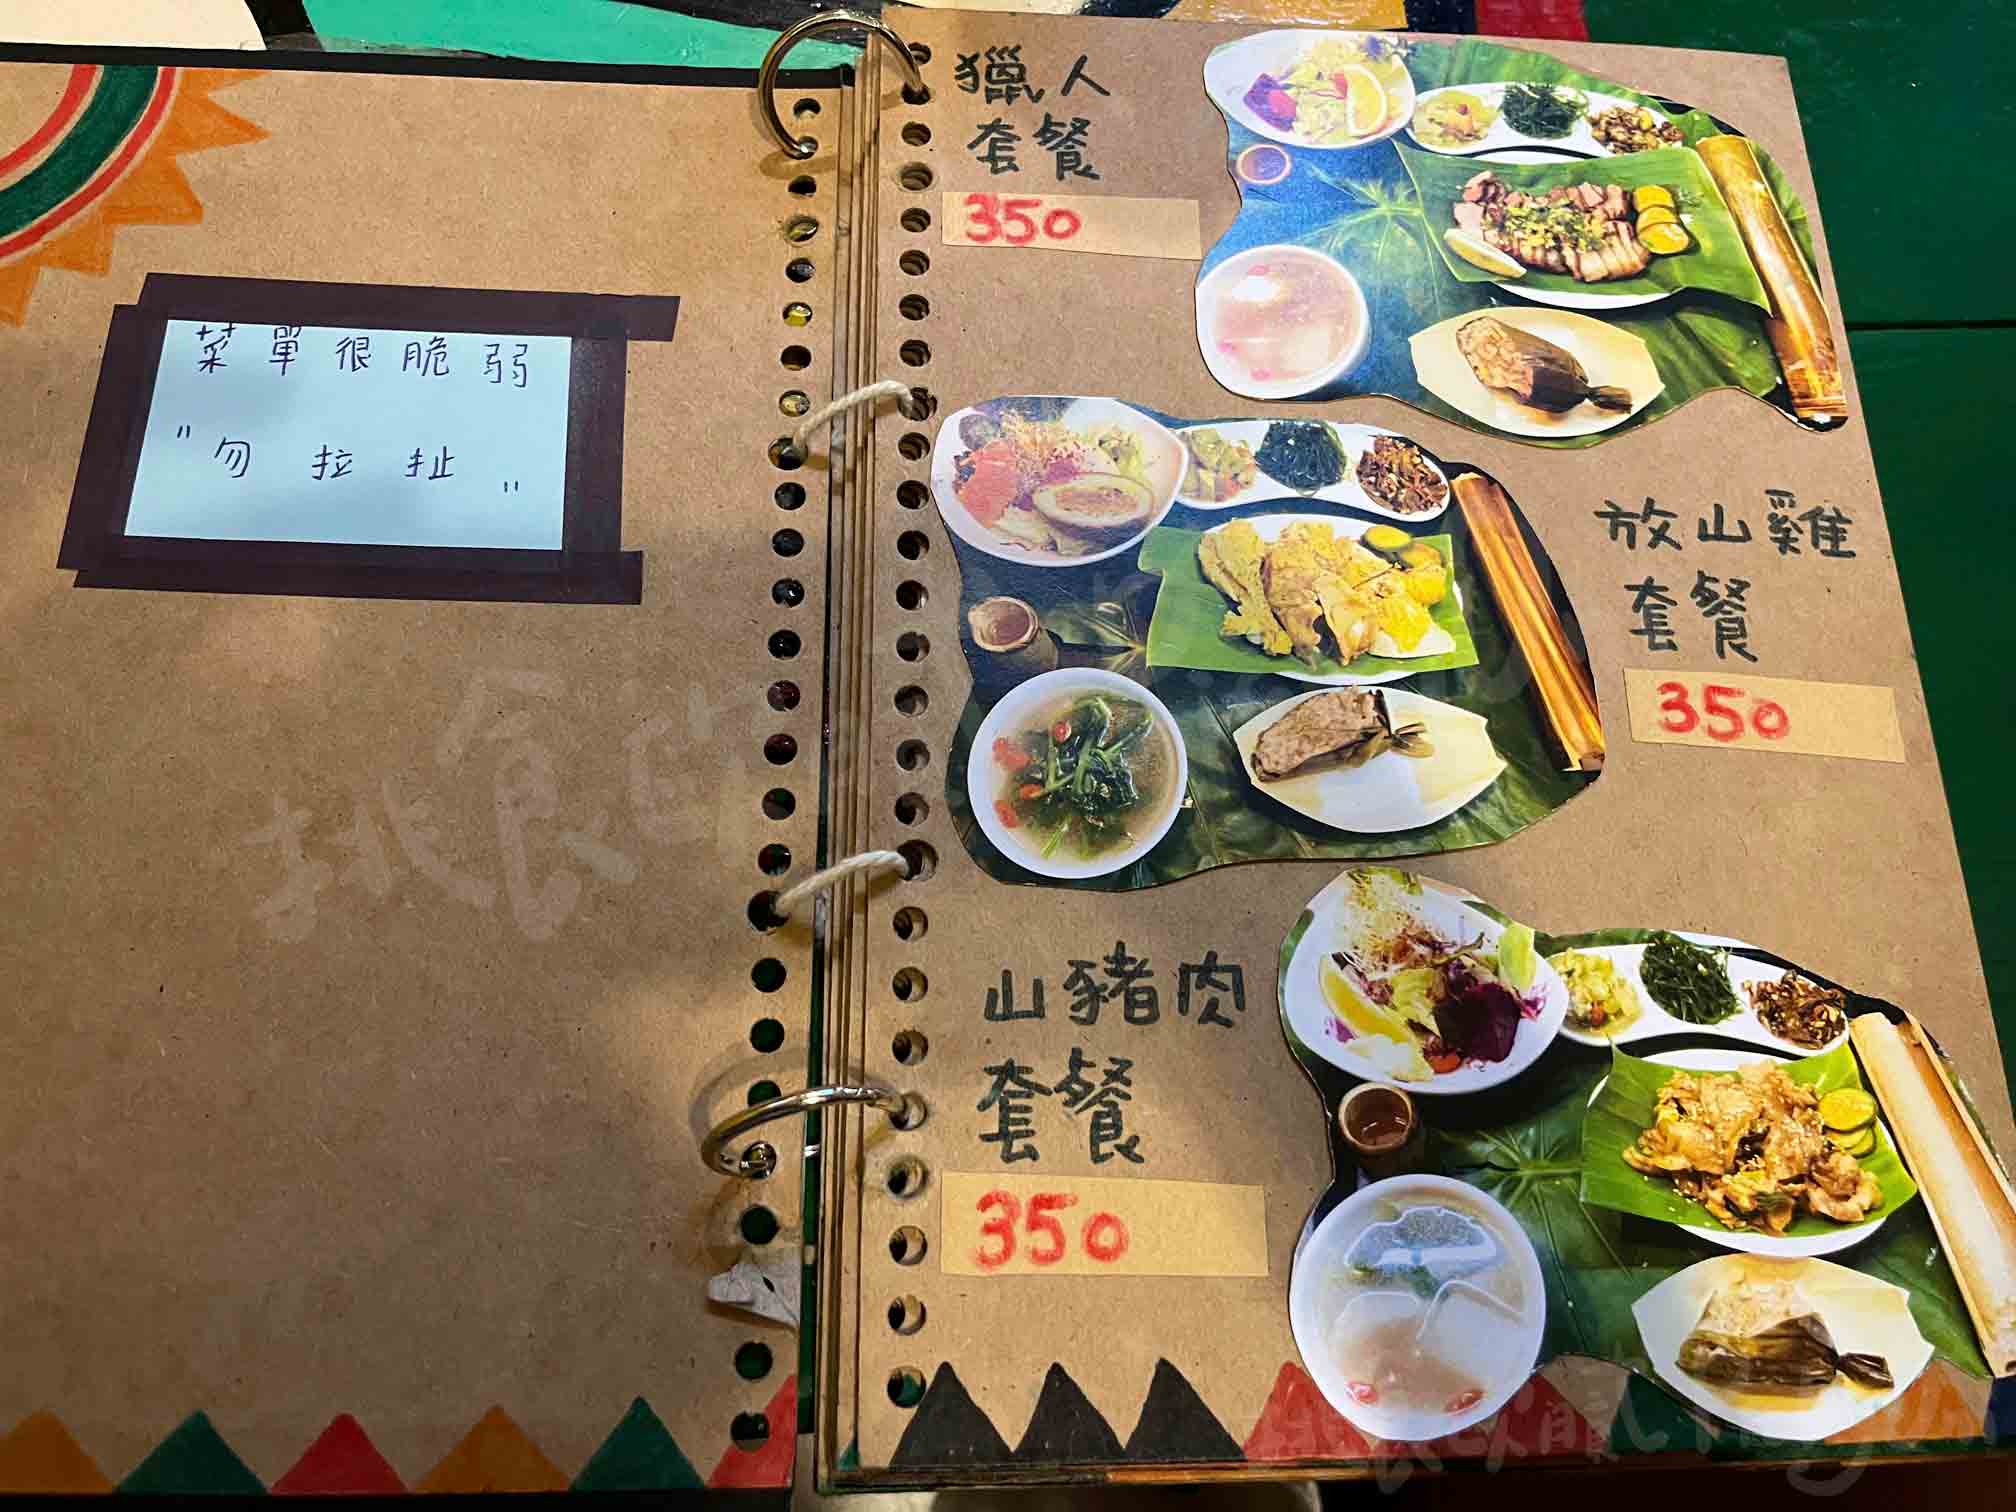 菜單很脆弱
"勿拉扯"
獵人
套餐
350
放山雞
套餐
350
山豬肉
套餐
350